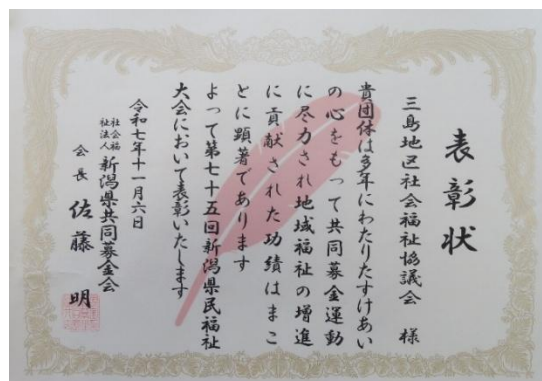 表彰状
三島地区社会福祉協議会 様
貴団体は多年にわたりたすけあい
の心をもって共同募金運動
に尽力され地域福祉の増進
に貢献された功績はまこ
とに顕著であります
よって第七十五回新潟県民福祉
大会において表彰いたします
令和七年十一月六日
社会福祉法人 新潟県共同募金会
会長 佐藤 明